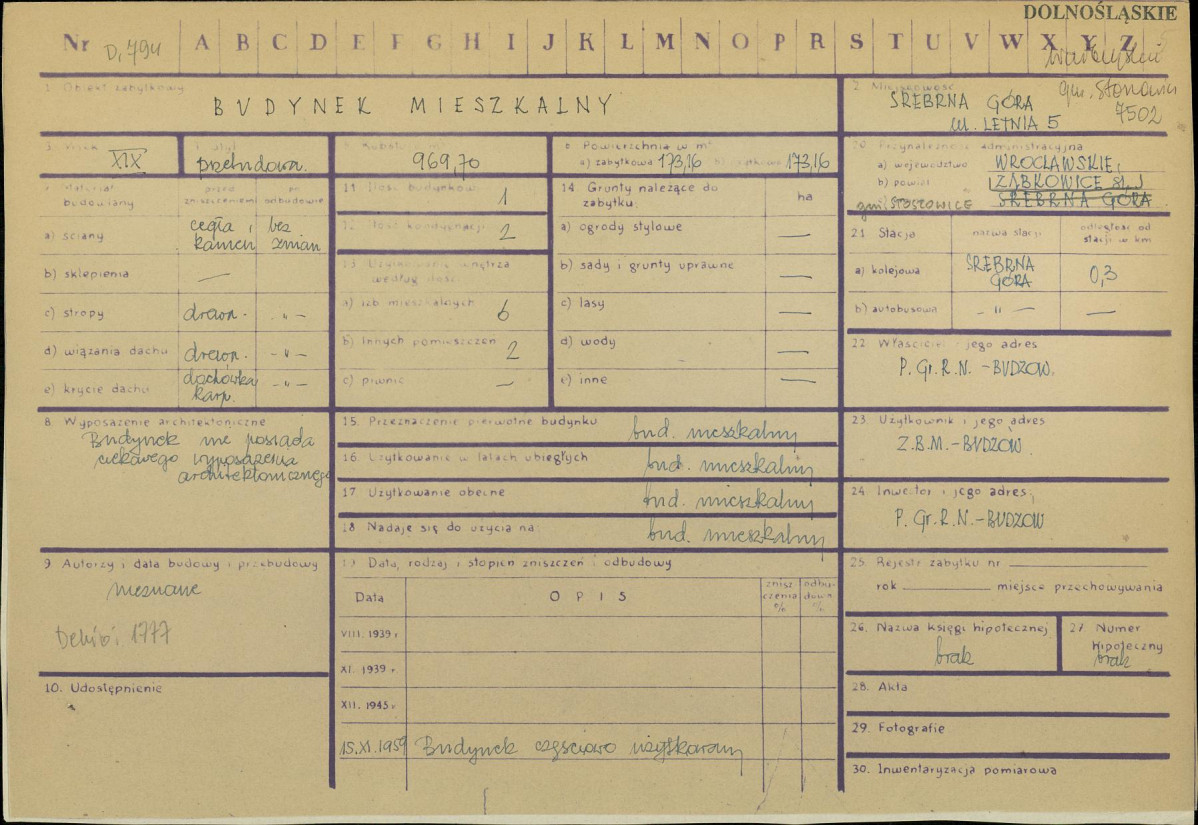 DOLNOŚLĄSKIE
Nr D, 794 A B C D E F G H I J K L M N O P R S T U V W X Y Z
1 Obiekt zabytkowy
BUDYNEK MIESZKALNY
2. Miejscowość
SREBRNA GÓRA
ul. LETNIA 5
gm. Stoszowice
7502
3. Wiek
XIX
4 Styl
przebudowa.
5 Kubatura
969,70
6 Powierzchnia w m²
a) zabytkowa 173,16 b) użytkowa 173,16
20 Przynależność administracyjna
a) województwo WROCŁAWSKIE,
b) powiat ZĄBKOWICE ŚL.
gmi. STOSZOWICE SREBRNA GÓRA
7 Materiał budowlany
przed zniszczeniem
po odbudowie
a) ściany cegła i kamień bez zmian
b) sklepienia —
c) stropy drewn. - „ -
d) wiązania dachu drewn. - „ -
e) krycie dachu dachówka karp. - „ -
11 Ilość budynków 1
12 Ilość kondygnacji 2
13 Użytkowanie wnętrza według ilości
a) izb mieszkalnych 6
b) innych pomieszczeń 2
c) piwnic —
14 Grunty należące do zabytku:
ha
a) ogrody stylowe —
b) sady i grunty uprawne —
c) lasy —
d) wody —
e) inne —
21 Stacja
nazwa stacji
odległość od stacji w km
a) kolejowa SREBRNA GÓRA 0,3
b) autobusowa - „ - —
22 Właściciel i jego adres
P. Gr. R. N. - BUDZÓW.
8 Wyposażenie architektoniczne
Budynek nie posiada
ciekawego wyposażenia
architektonicznego
15. Przeznaczenie pierwotne budynku bud. mieszkalny
16. Użytkowanie w latach ubiegłych bud. mieszkalny
17 Użytkowanie obecne bud. mieszkalny
18 Nadaje się do użycia na: bud. mieszkalny
23. Użytkownik i jego adres
Z.B.M. - BUDZÓW.
24 Inwestor i jego adres
P. Gr. R. N. - BUDZÓW
9 Autorzy i data budowy i przebudowy
nieznane
Dehio: 1777
10. Udostępnienie
19 Data, rodzaj i stopień zniszczeń i odbudowy
Data
OPIS
zniszczenia %
odbudowa %
VIII. 1939 r.
XI. 1939 r.
XII. 1945 r.
15.XI.1959 Budynek częściowo użytkowany
25. Rejestr zabytku nr
rok miejsce przechowywania
26. Nazwa księgi hipotecznej
brak
27. Numer hipoteczny
brak
28. Akta
29. Fotografie
30. Inwentaryzacja pomiarowa